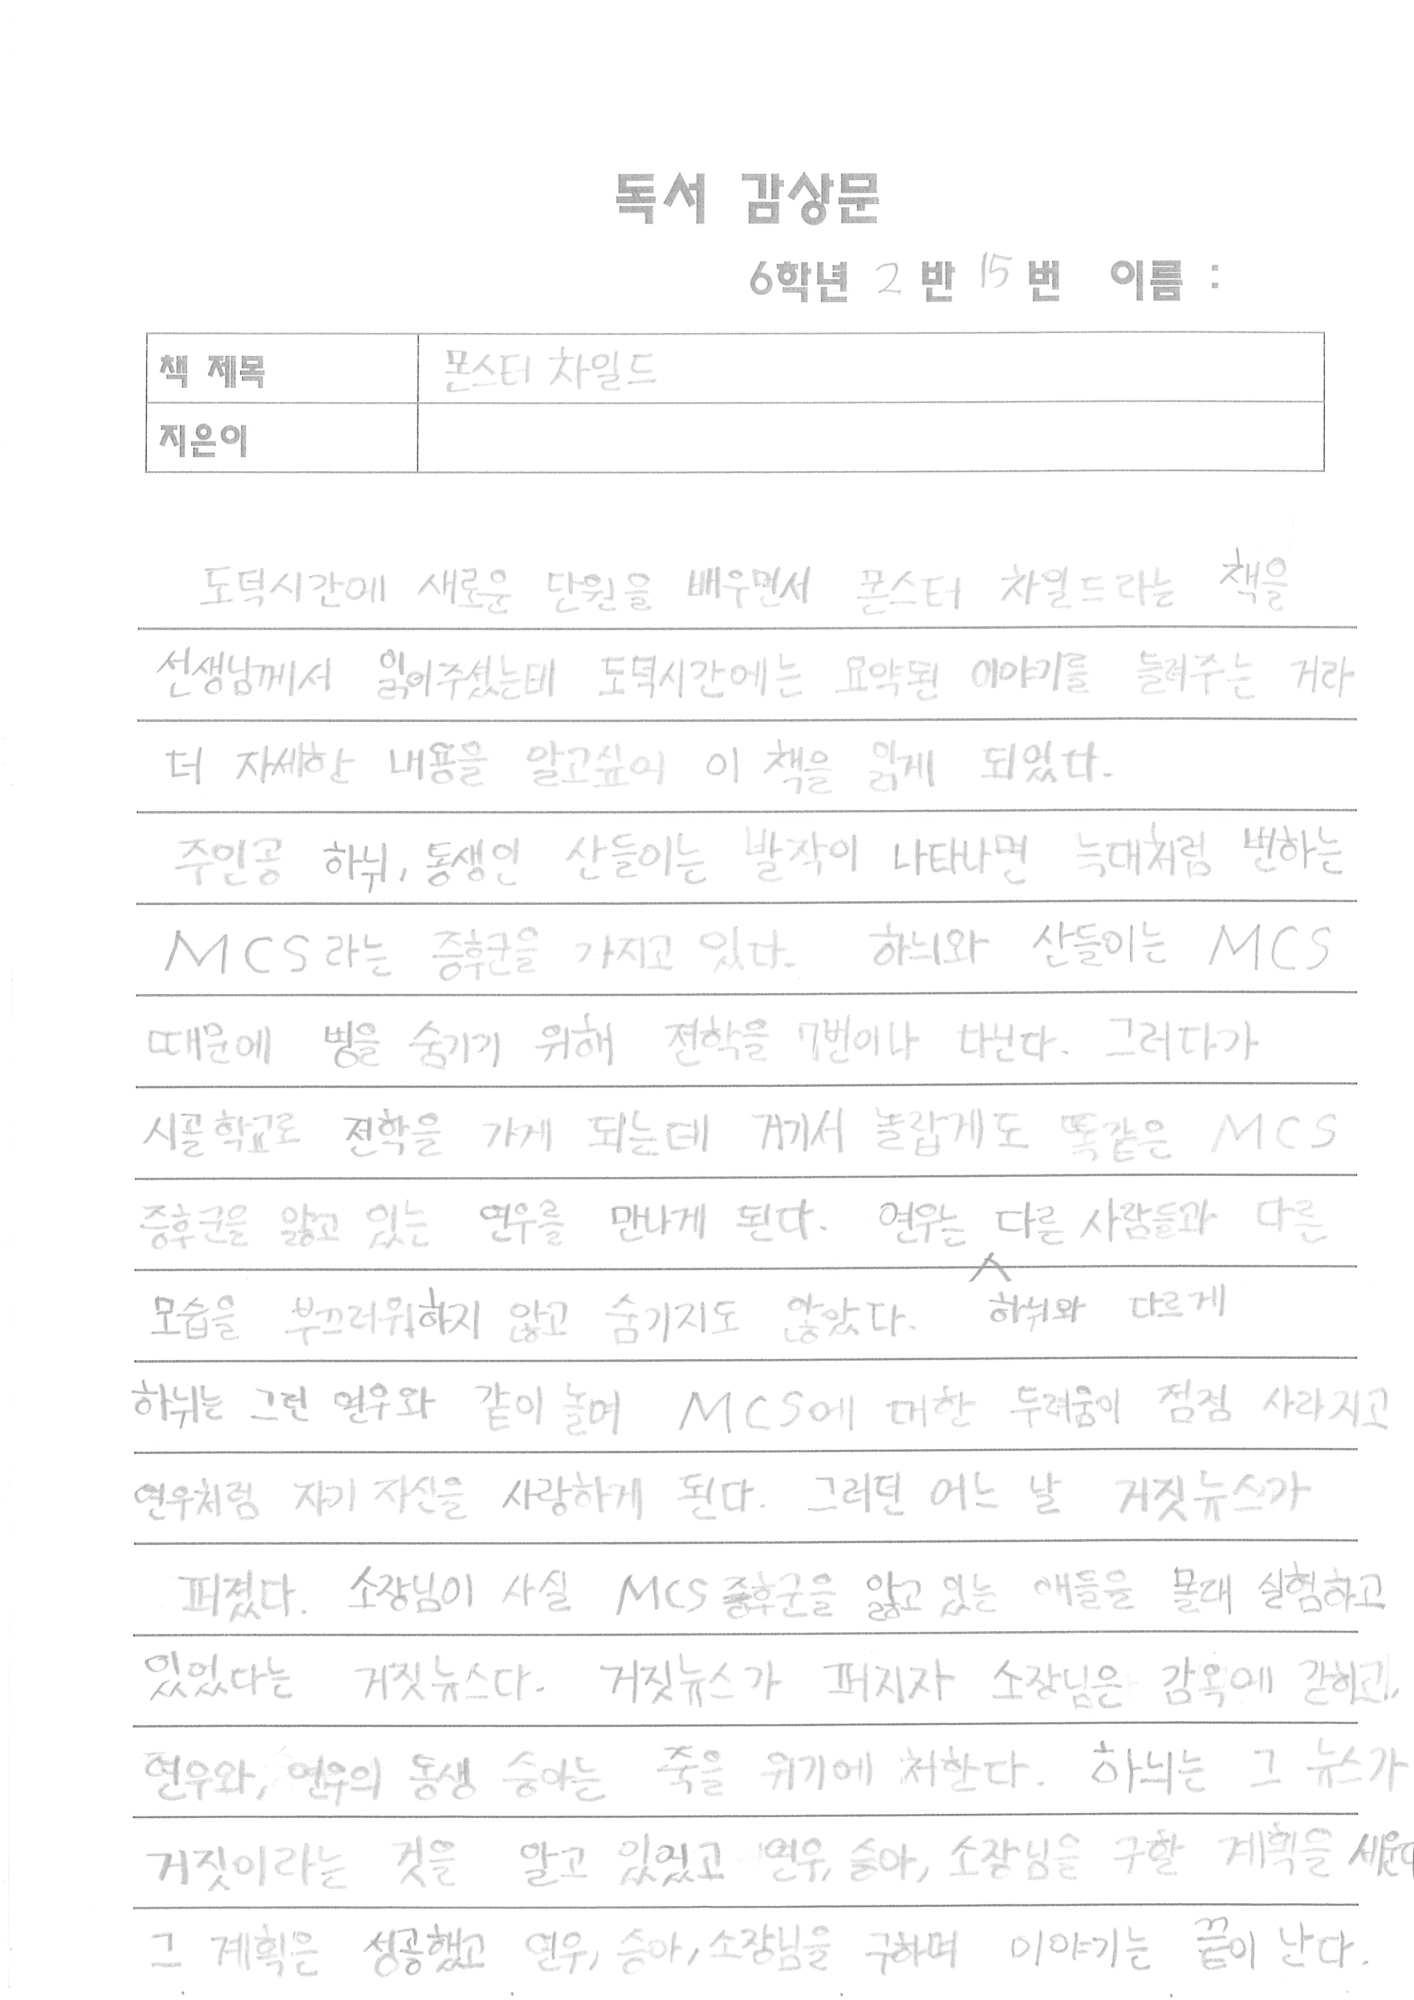 독서 감상문
6학년 2 반 15 번 이름 :
책 제목 몬스터 차일드
지은이
도덕시간에 새로운 단원을 배우면서 몬스터 차일드라는 책을
선생님께서 읽어주셨는데 도덕시간에는 요약된 이야기를 들려주는 거라
더 자세한 내용을 알고싶어 이 책을 읽게 되었다.
주인공 하늬, 동생인 산들이는 발작이 나타나면 늑대처럼 변하는
MCS라는 증후군을 가지고 있다. 하늬와 산들이는 MCS
때문에 병을 숨기기 위해 전학을 7번이나 다닌다. 그러다가
시골학교로 전학을 가게 되는데 거기서 놀랍게도 똑같은 MCS
증후군을 앓고 있는 연우를 만나게 된다. 연우는 다른 사람들과 다른
모습을 부끄러워하지 않고 숨기지도 않았다. 하늬와 다르게
하늬는 그런 연우와 같이 놀며 MCS에 대한 두려움이 점점 사라지고
연우처럼 자기 자신을 사랑하게 된다. 그러던 어느 날 거짓뉴스가
퍼졌다. 소장님이 사실 MCS 증후군을 앓고 있는 애들을 몰래 실험하고
있었다는 거짓뉴스다. 거짓뉴스가 퍼지자 소장님은 감옥에 갇히고,
연우와, 연우의 동생 승아는 죽을 위기에 처한다. 하늬는 그 뉴스가
거짓이라는 것을 알고 있었고 연우, 승아, 소장님을 구할 계획을 세운다
그 계획은 성공했고 연우, 승아, 소장님을 구하며 이야기는 끝이 난다.